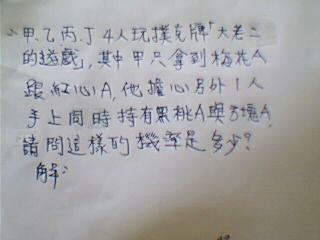 甲、乙丙、丁4人玩撲克牌「大老二
的遊戲」，其中甲只拿到梅花A
跟紅心A，他擔心另外1人
手上同時持有黑桃A與方塊A，
請問這樣的機率是多少？
解：